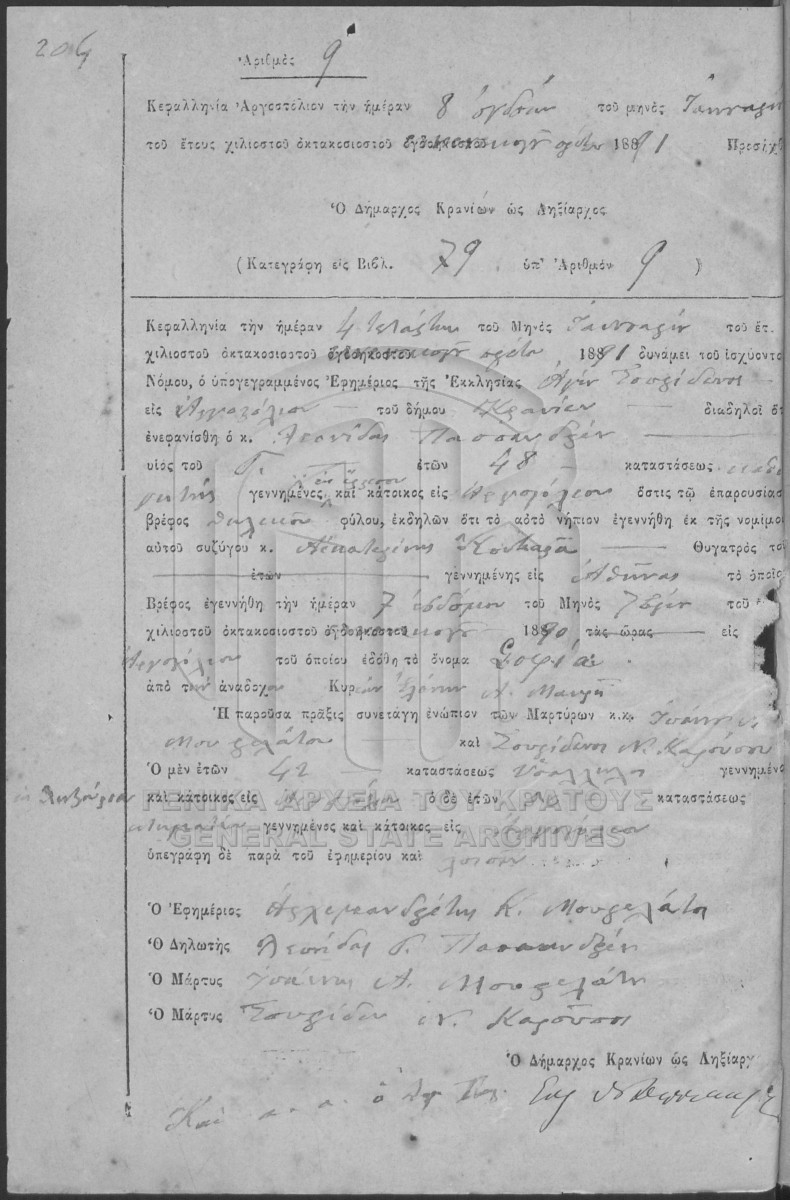 204
Ἀριθμὸς 9
Κεφαλληνία Ἀργοστόλιον τὴν ἡμέραν 8 ὀγδόην τοῦ μηνὸς Ἰανουαρίου
τοῦ ἔτους χιλιοστοῦ ὀκτακοσιοστοῦ ὀγδοηκοστοῦ ἐνενηκοστοῦ πρώτου 1891 Προσήχθ
Ὁ Δήμαρχος Κρανίων ὡς Ληξίαρχος
(Κατεγράφη εἰς Βιβλ. 79 ὑπ' Ἀριθμὸν 9 )
Κεφαλληνία τὴν ἡμέραν 4 τετάρτην τοῦ Μηνὸς Ἰανουαρίου τοῦ ἔτ.
χιλιοστοῦ ὀκτακοσιοστοῦ ὀγδοηκοστοῦ ἐνενηκοστοῦ πρώτου 1891 δυνάμει τοῦ ἰσχύοντο
Νόμου, ὁ ὑπογεγραμμένος Ἐφημέριος τῆς Ἐκκλησίας Ἁγίου Σπυρίδωνος
εἰς Ἀργοστόλιον τοῦ δήμου Κρανίων διαδηλοῖ ὅτ
ἐνεφανίσθη ὁ κ. Λεωνίδας Παπανδρέου
υἱὸς τοῦ Γ. ἐτῶν 48 καταστάσεως καθη
γητὴς γεννημένος καὶ κάτοικος εἰς Ἀργοστόλιον ὅστις τῷ ἐπαρουσίασ
βρέφος θηλυκοῦ φύλου, ἐκδηλῶν ὅτι τὸ αὐτὸ νήπιον ἐγεννήθη ἐκ τῆς νομίμο
αὐτοῦ συζύγου κ. Αἰκατερίνης Θυγατρὸς το
ἐτῶν γεννημένης εἰς Ἀθήνας τὸ ὁποῖο
Βρέφος ἐγεννήθη τὴν ἡμέραν 7 ἑβδόμην τοῦ Μηνὸς 7βρίου τοῦ
χιλιοστοῦ ὀκτακοσιοστοῦ ὀγδοηκοστοῦ ἐνενηκοστοῦ 1890 τὰς ὥρας εἰς
Ἀργοστόλιον τοῦ ὁποίου ἐδόθη τὸ ὄνομα Σοφία
ἀπὸ τὴν ἀνάδοχον Κυρίαν Ἑλένην Α.
Ἡ παροῦσα πρᾶξις συνετάγη ἐνώπιον τῶν Μαρτύρων κ.κ. Ἰωάννου
Μουρελάτου καὶ Σπυρίδωνος Ν. Καρούσου
Ὁ μὲν ἐτῶν 42 καταστάσεως Ὑπάλληλος γεννημένο
ἐν Ληξουρίῳ καὶ κάτοικος εἰς ὁ δὲ ἐτῶν καταστάσεως
γεννημένος καὶ κάτοικος εἰς Ἀργοστόλιον
ὑπεγράφη δὲ παρὰ τοῦ ἐφημερίου καὶ
ΓΕΝΙΚΑ ΑΡΧΕΙΑ ΤΟΥ ΚΡΑΤΟΥΣ
GENERAL STATE ARCHIVES
Ὁ Ἐφημέριος Ἀρχιμανδρίτης Κ. Μουρελάτος
Ὁ Δηλωτὴς Λεωνίδας Γ. Παπανδρέου
Ὁ Μάρτυς Ἰωάννης Α. Μουρελάτος
Ὁ Μάρτυς Σπυρίδων Ν. Καροῦσος
Ὁ Δήμαρχος Κρανίων ὡς Ληξίαρχ